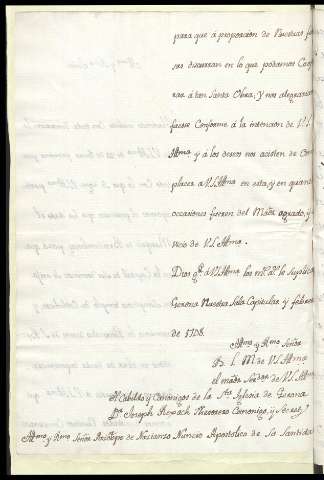 para que à proporcion de Nuestras fuer
sas discurran en lo que podamos Coope
rar à tan Santa Obra; y nos alegraríamos
fuesse Conforme à la intencion de V.S.
Illma y à los deseos nos asisten de Com
placer à V.S. Illma en esta, y en quantas
occasiones fuessen del Maior agrado, y ser
vicio de V.S. Illma.
Dios gde à V.S. Illma los ms as le Suplica
Gerona Nuestra Sala Capitular y febrero
de 1758.
Illmo y Rmo Señor
B. L. M. de V.S. Illma
el maior Serdor de V.S. Illma
El Cabildo y Canonigos de la Sta Iglesia de Gerona
Dr Joseph Canonigo, y Secret
Illmo y Rmo Señor Arzobispo de Nazianzo Nuncio Apostolico de Su Santidad